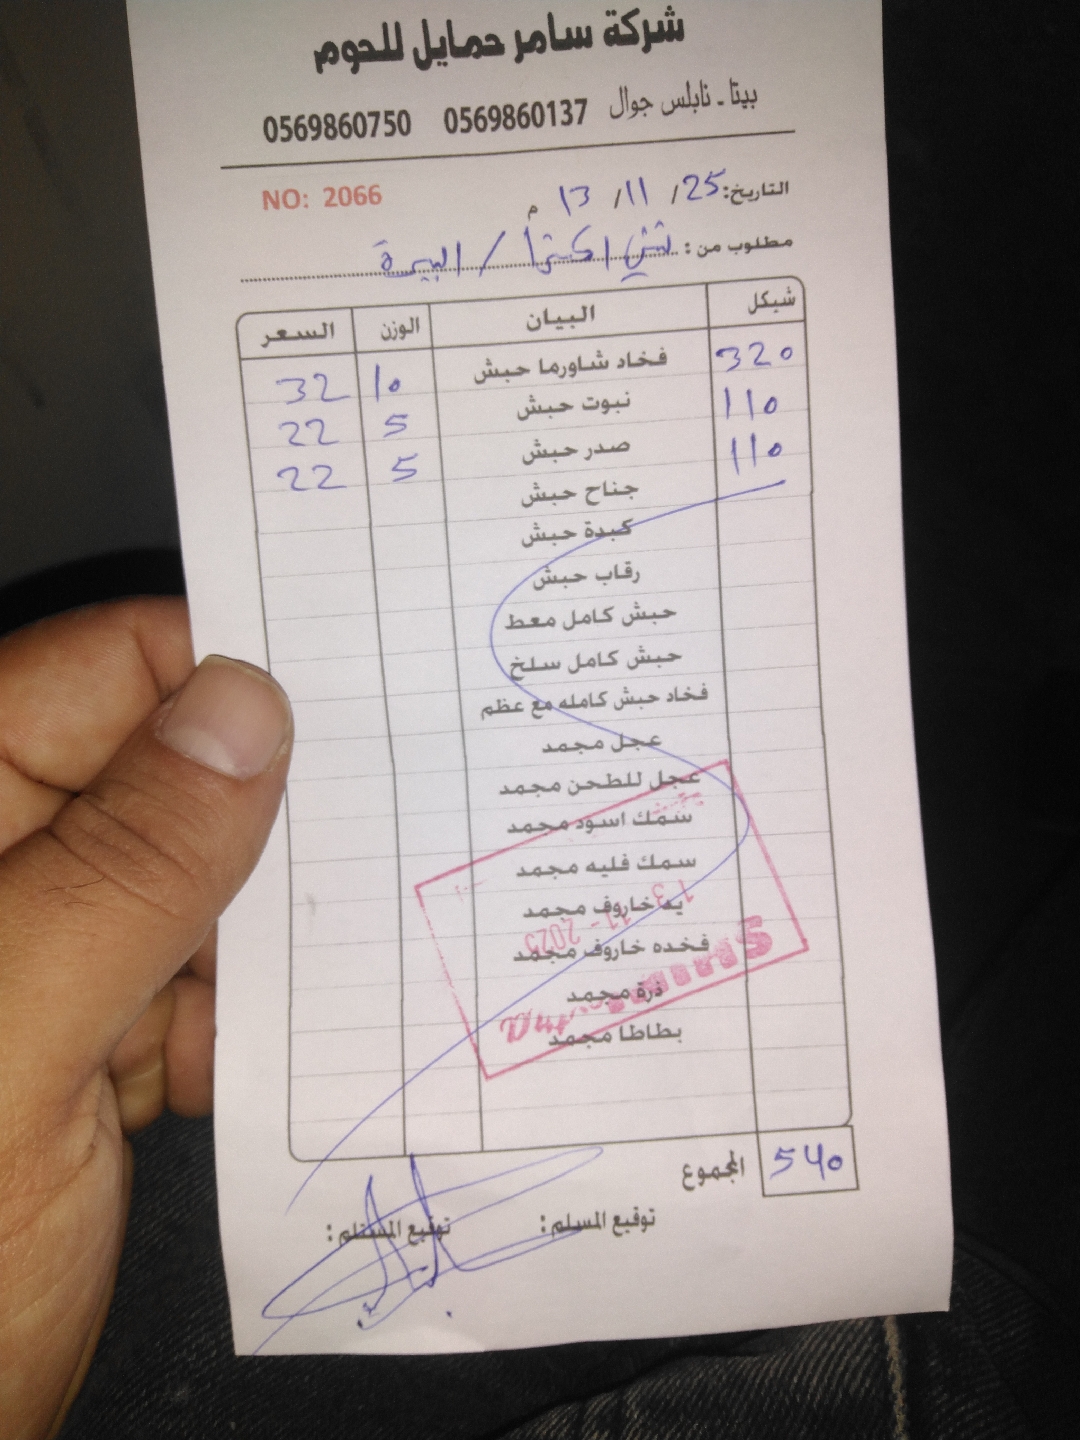 شركة سامر حمايل للحوم
بيتا - نابلس جوال 0569860137 0569860750
NO: 2066
التاريخ: 25 / 11 / 13 م
مطلوب من : / البيرة
شيكل البيان الوزن السعر
320 فخاد شاورما حبش 10 32
110 نبوت حبش 5 22
110 صدر حبش 5 22
جناح حبش
كبدة حبش
رقاب حبش
حبش كامل معط
حبش كامل سلخ
فخاد حبش كامله مع عظم
عجل مجمد
عجل للطحن مجمد
سمك اسود مجمد
سمك فليه مجمد
يد خاروف مجمد
13 -11- 2025
فخده خاروف مجمد
ذرة مجمد
بطاطا مجمد
المجموع 540
توقيع المسلم : توقيع المستلم :